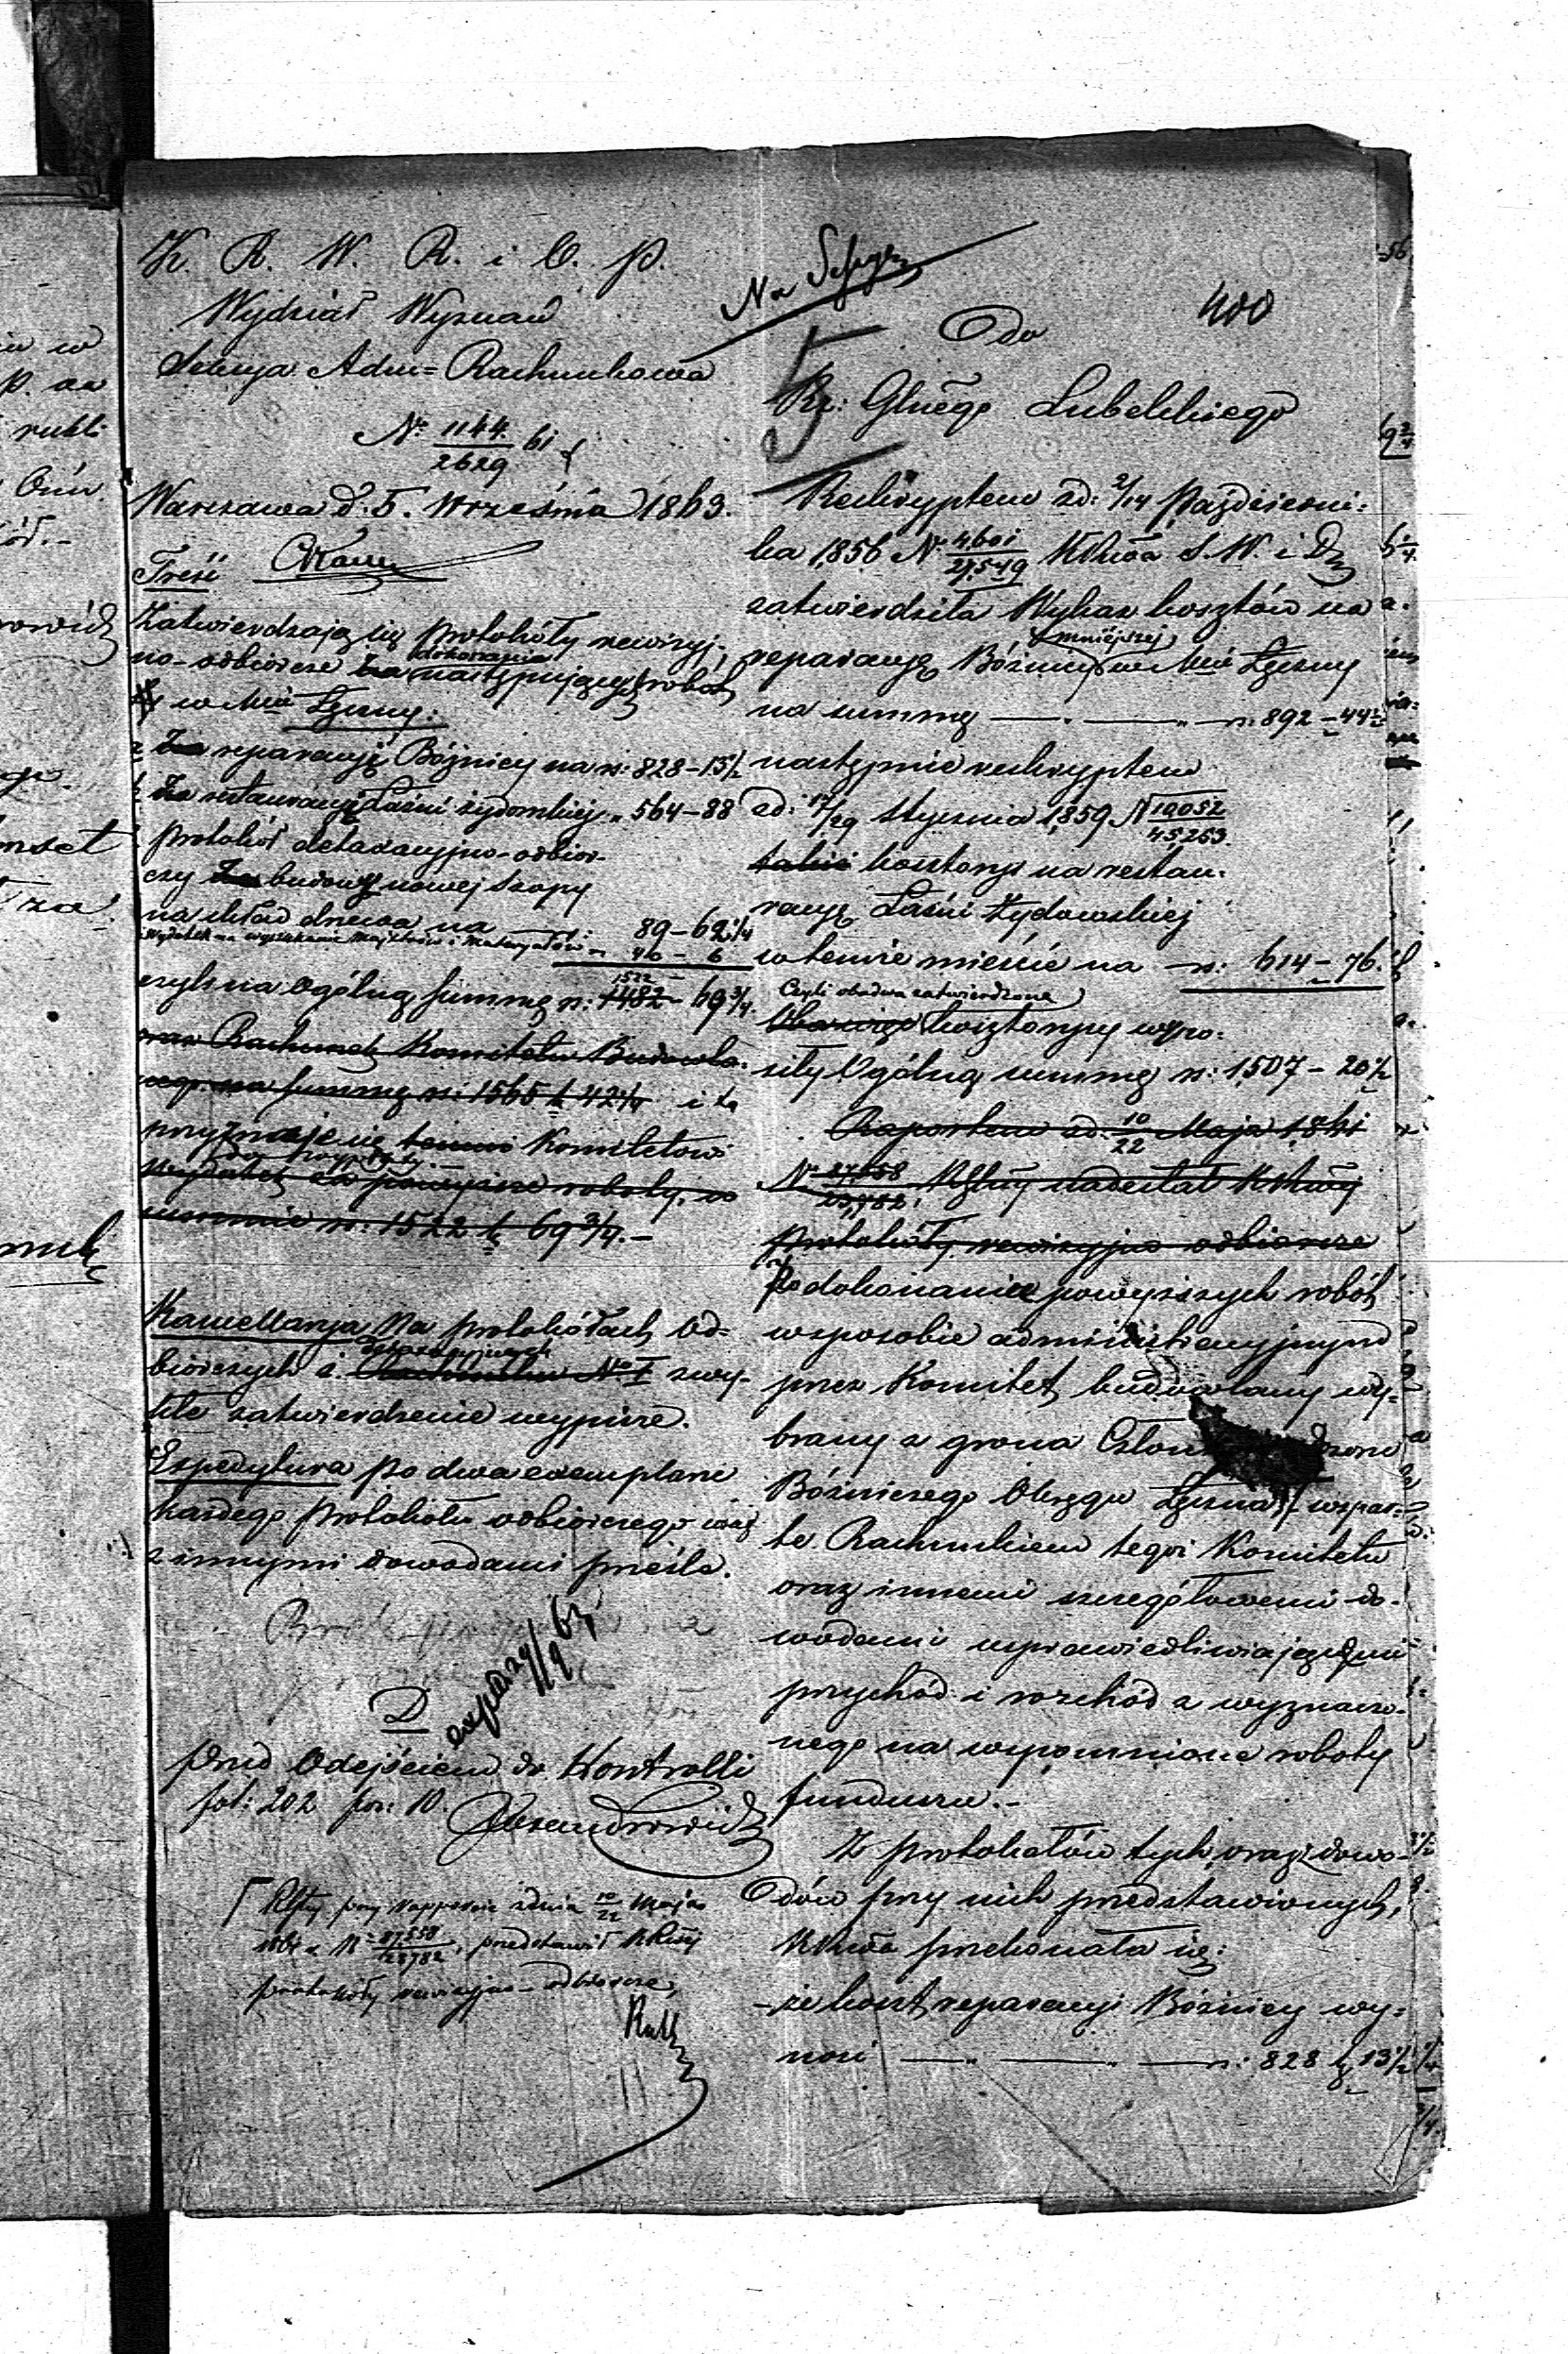 K. R. W. R. i O. P.
Wydział Wyznań
Sekcya Adm= Rachunkowa
№ 1144/2629
Warszawa d. 5. Września 1863.
Treść
Zatwierdzają się protokóły rewizyj-
no-odbiorcze dokonania następujących robót
w Mie Łęczny:
reparacyę Bóżnicy na rs: 828-13½
restauracyę Łaźni żydowskiej „ 564-88
protokół detaxacyjno-odbior-
czy budowy nowej Szopy
na skład drzewa na 89-62¼
Wydatek na wyszukanie Majstrów i Materyałów - 40-6
czyli na Ogólną summę rs: 1522 1482-69¾.
oraz Rachunek Komitetu Budowla-
nego na summę rs: 1565 k 42¼ i
przyznaje się Komitetowi
Wydatek za powyższe roboty, w
summie rs: 1522 k 69¾.-
Kancellarya na protokółach od-
biorczych i detaxacyjnych Rachunku № I zwy-
kłe zatwierdzenie wypisze.
Expedytura po dwa exemplarze
każdego protokółu odbiorczego wraz
z innymi dowodami prześle.
exped 29/9 63
D
Przed Odejściem do Kontrolli
fol: 202 poz: 10.
Rłny przy Rapporcie z dnia 10/22 Maja
1861 r № 27,558/23,782, przedstawił KRząd
protokóły rewizyjno-odbiorcze,
400
5
Do
Rz: Głnego Lubelskiego
Reskryptem zd: 2/14 Październi-
ka 1856 № 4601/27,549 KRwa S. W. i D
zatwierdziła Wykaz kosztów na
reparacyę Bóżnicy mniejszej w Mie Łęczny
na summę rs: 892-44½
następnie reskryptem
zd: 17/29 Stycznia 1859 № 10052/45,253.
kosztorys na restau-
racyę Łaźni Żydowskiej
w temże mieście na rs: 614-76.
Czyli obadwa zatwierdzone
kosztorysy wyno-
siły Ogólną summę rs: 1,507-20½
Raportem zd: 10/22 Maja 1861
№ 27,558/23,782. RGłny nadesłał KRwej
protokóły rewizyjno odbiorcze
Po dokonaniu powyższych robót
w sposobie administracyjnym
przez Komitet budowlany wy-
brany z grona Członków Dozoru
Bóżniczego Okręgu Łęczna, wspar-
te Rachunkiem tegoż Komitetu
oraz innemi szczegółowemi do-
wodami usprawiedliwiającymi
przychód i rozchód z wyznaczo-
nego na wspomnione roboty
funduszu.-
Z protokółów tych, oraz dowo-
dów przy nich przedstawionych,
KRwa przekonała się:
-że koszt reparacyi Bóżnicy wy-
nosi rs: 828 k 13½